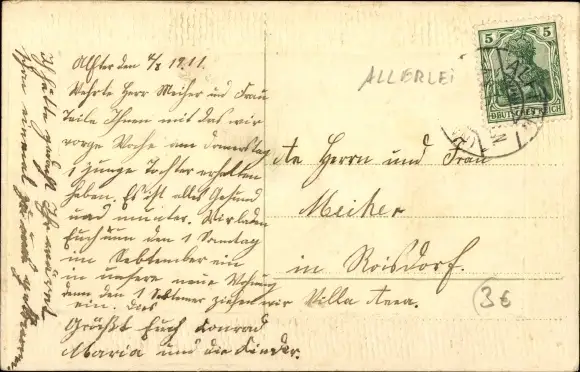 Alfter den 4/8 1911.
Wehrte Herr Meiher und Frau
Teile Ihnen mit das wir
vorge Woche am Donnerstag
1 junge Tochter erhalten
haben. Es ist alles Gesund
und munter. Wir laden
Euch um den 1 Sonntag
im September ein
in unsere neue Wohung
denn den 1 Septemer ziehen wir
ein. Das
Grüßt Euch Conrad
Maria und die Kinder.
Ich hätte gedacht Ihr
einmal
ALLERLEI
5 5
DEUTSCHES REICH
An Herrn und Frau
Meiher
in Roisdorf.
Villa Anna.
3€